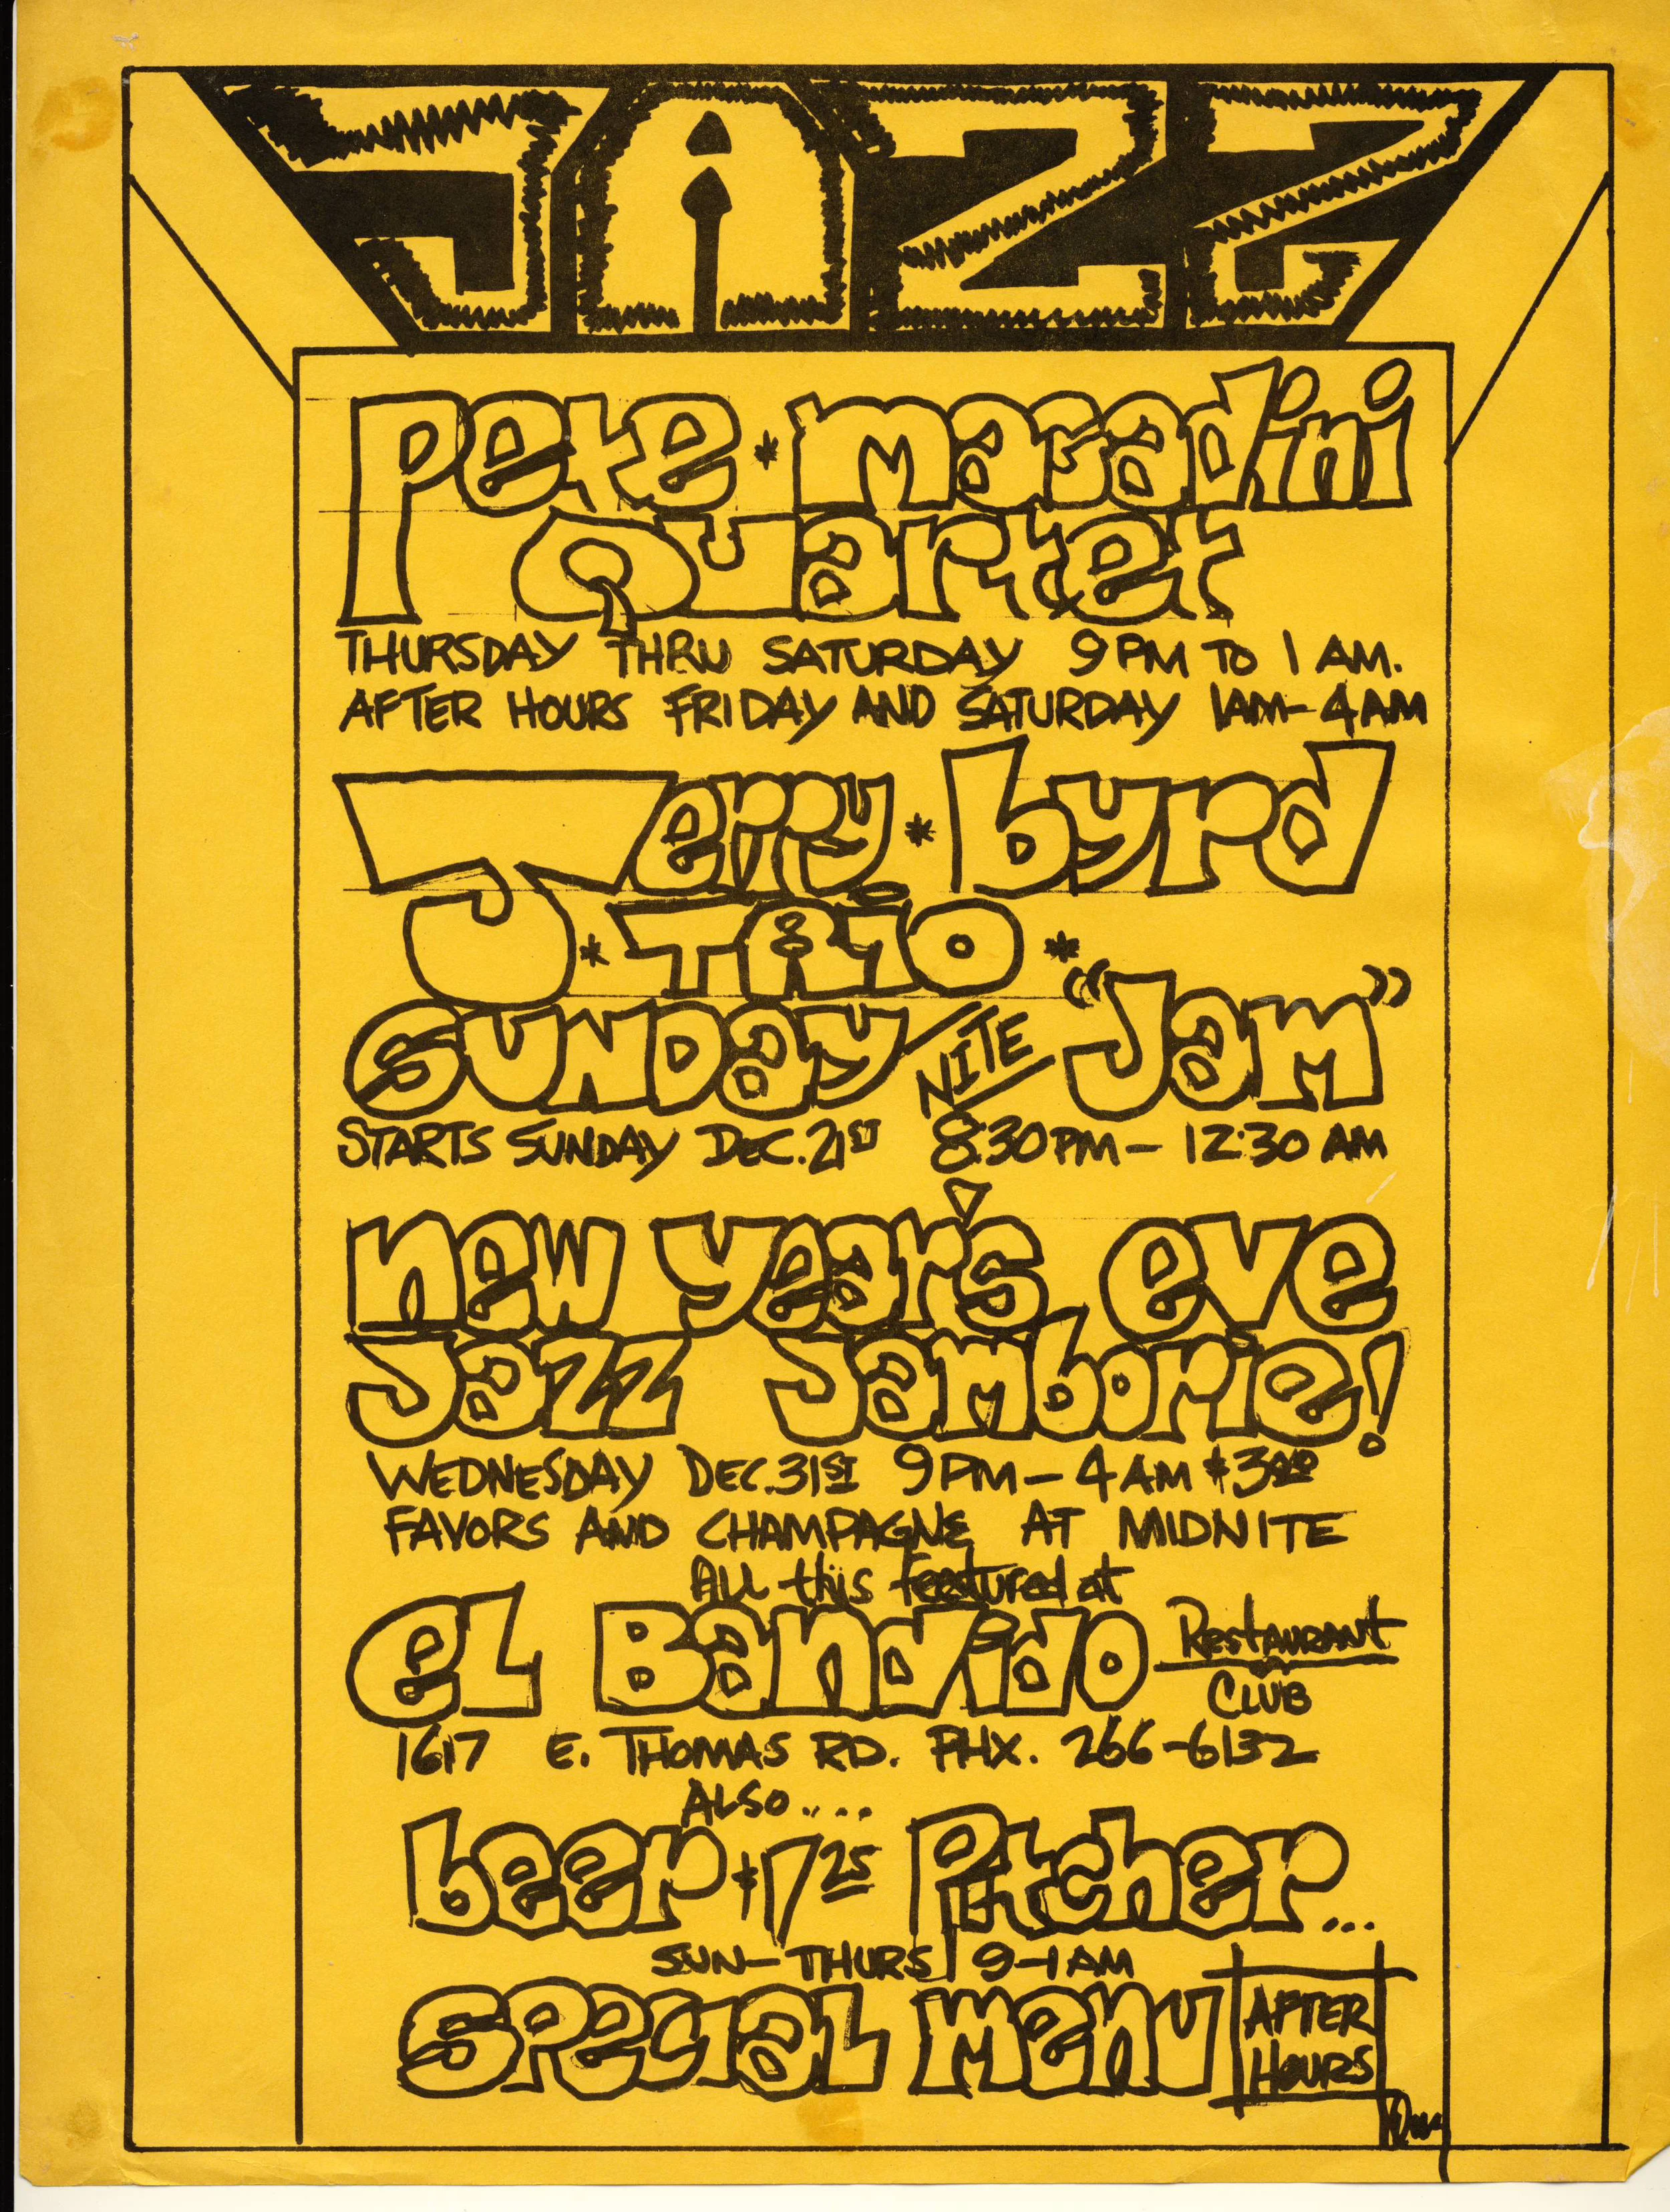 JAZZ
Pete * Magadini
Quartet
THURSDAY THRU SATURDAY 9 PM TO 1 AM.
AFTER HOURS FRIDAY AND SATURDAY 1AM-4AM
Jerry * byrd
* TRiO *
SUNDay NITE "Jam"
STARTS SUNDAY DEC. 21ST 8:30PM - 12:30 AM
new year's eve
Jazz Jamborie!
WEDNESDAY DEC. 31ST 9PM - 4AM $3.00
FAVORS AND CHAMPAGNE AT MIDNITE
ALL this featured at
eL Bandido Restaurant
CLUB
1617 E. THOMAS RD. PHX. 266-6132
ALSO....
beer $1.25 Pitcher...
SUN-THURS 9-1AM
SPecial menu AFTER
HOURS